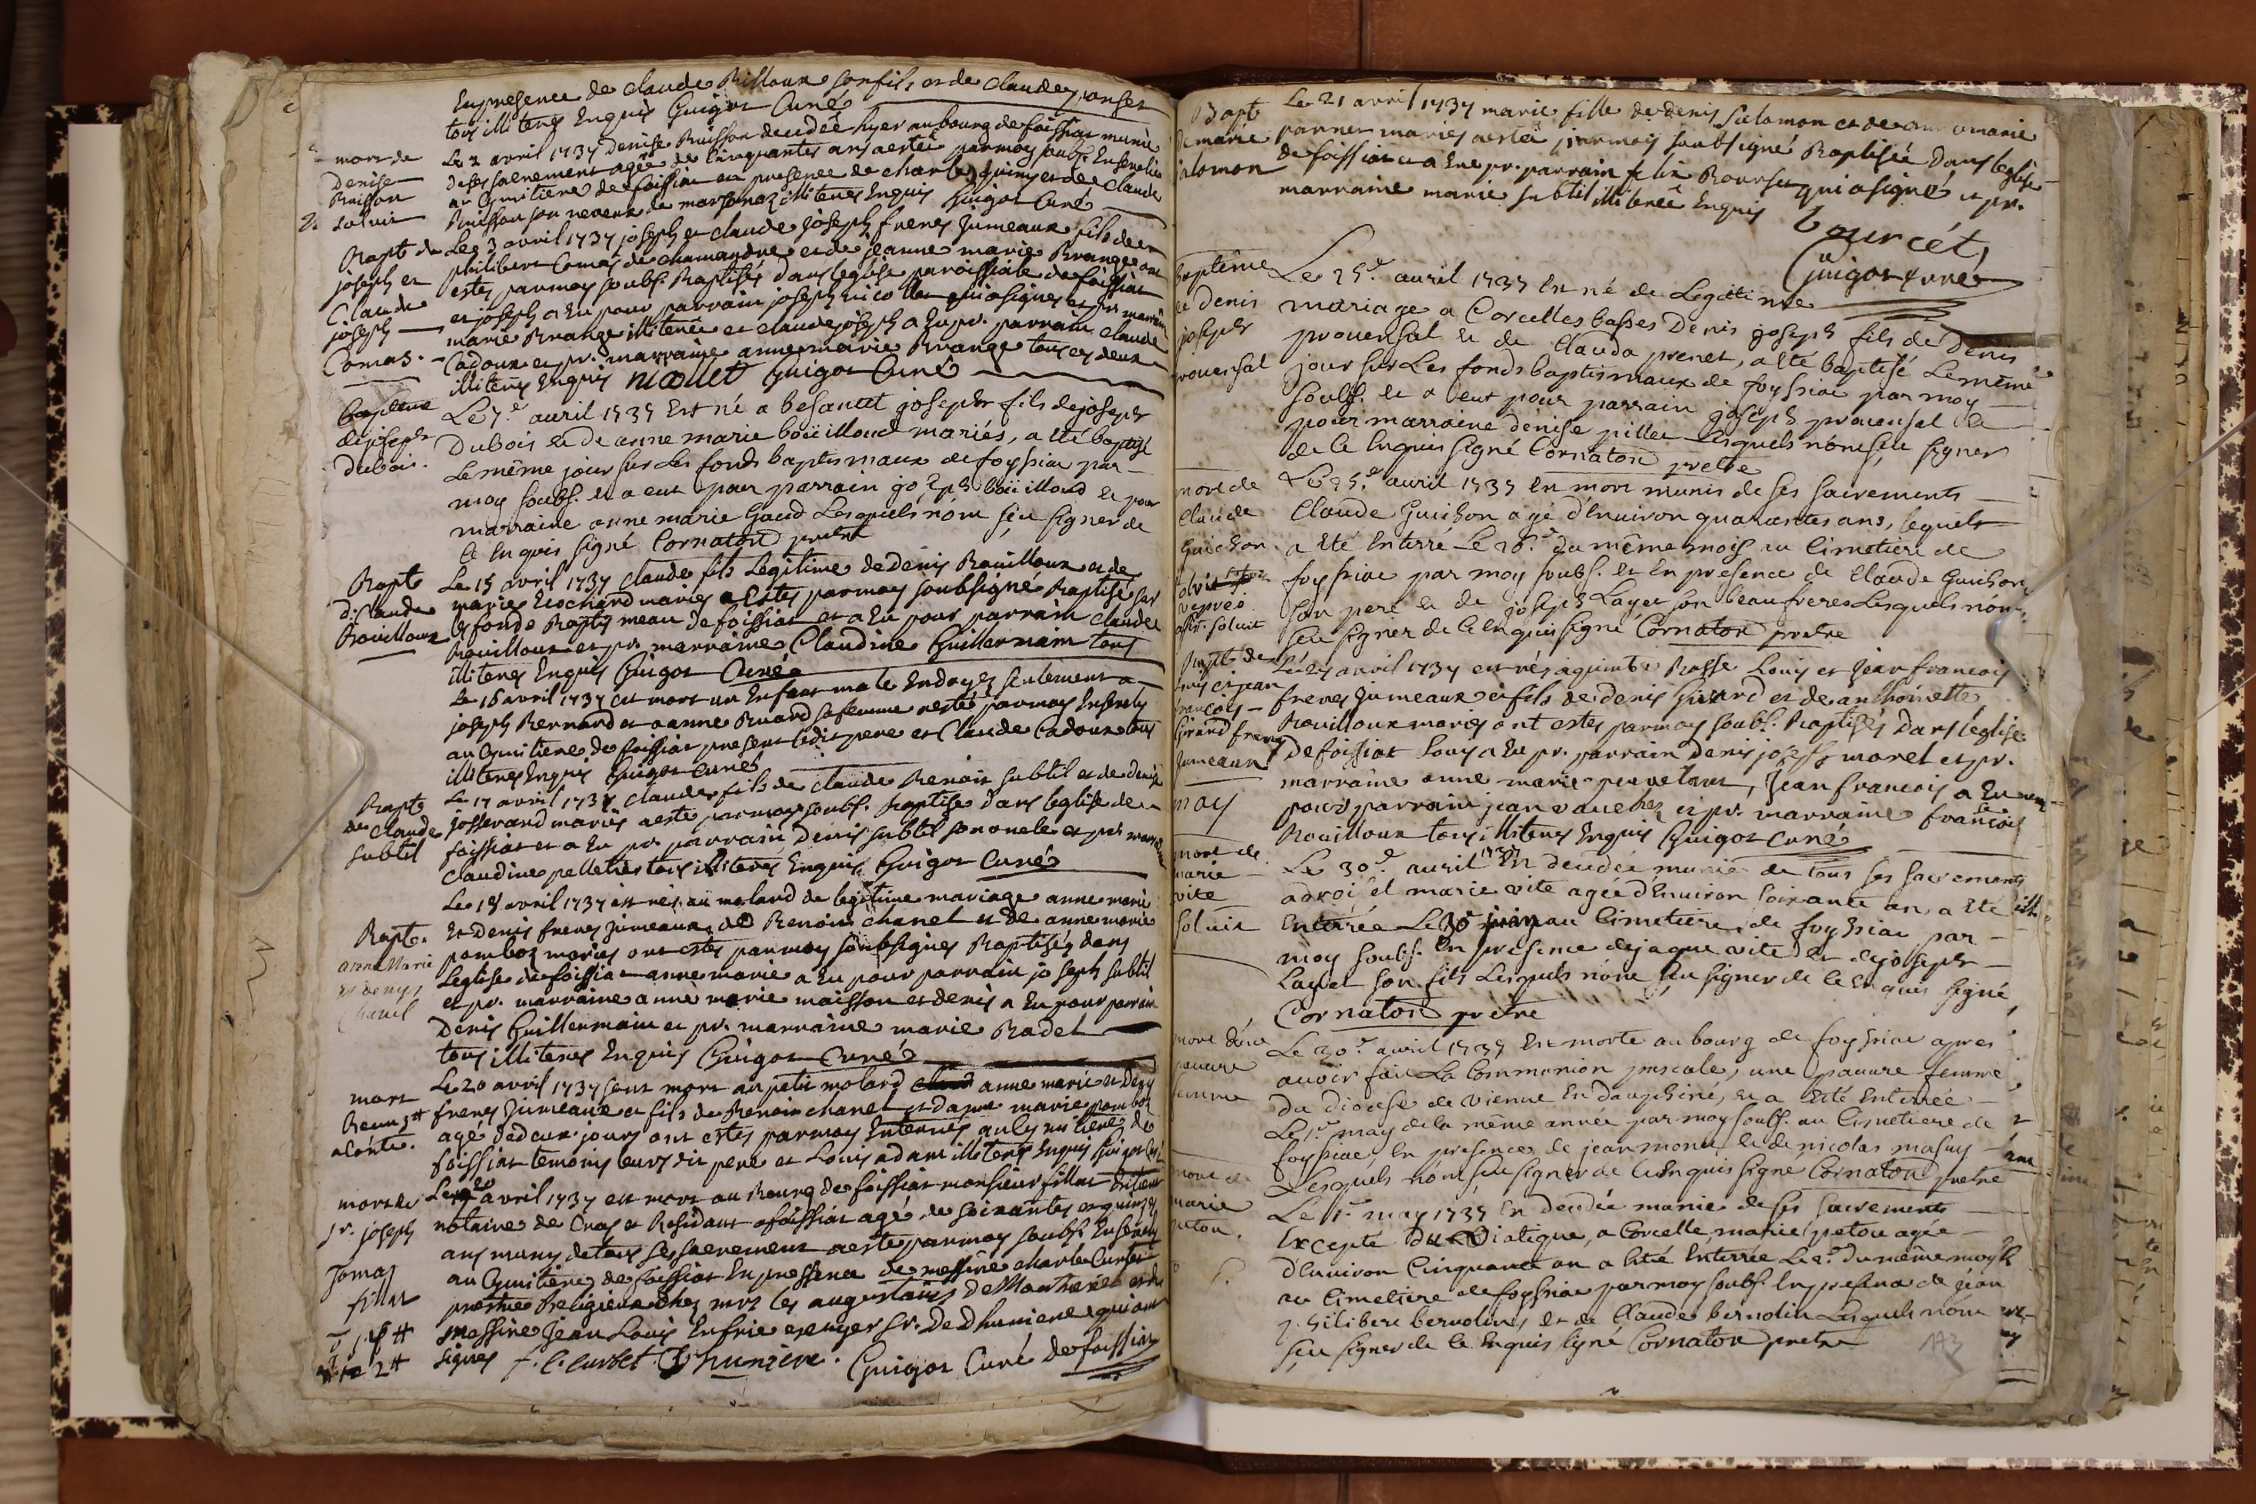 En presence de claude Rilloux son fils et de claude ponset
tous illiterés Enquis Guigot Curé
mort de
Denise
Buisson
solvit
Le 2 avril 1737 Denise Buisson decedée hyer au bourg de foissiat munie
de ses sacrement agée de Cinquantes ans a esté par moy soubs. Ensevelie
au Cymitiere de foissiat en presence de charle et de Claude
Buisson son neveux de marsonaz illiterés Enquis Guigot Curé
Bapt de
joseph et
Claude
joseph
Comas.
Le 3 avril 1737 joseph et claude joseph freres Jumeaux fils de
philibert Comas de chamandre et de jeanne marie Brange ont
estés par moy soubs. Baptisés dans leglise paroissiale de foissiat
et joseph a Eu pour parrain joseph nicollet qui a signés et pr marraine
marie Brange illiterée et claude joseph a Eu pr. parrain claude
Cadoux et pr. marraine anne marie Brange tous ces deux
illiterés Enquis nicollet Guigot Curé
baptême
de joseph
Dubois.
Le 7e avril 1737 Est né a besantet joseph fils de joseph
Dubois et de anne marie boüilloud mariés, a eté baptisé
Le même jour sur Les fonds baptismaux de foyssiac par
moy soubs. et a eut pour parrain joseph boüilloud et pour
marraine anne marie Gaud Lesquels nont sçu signer de
ce Enquis signé Cornaton pretre
Bapt
de Claude
Rouilloux
Le 15 avril 1737 Claude fils Legitime de denis Rouilloux et de
marie Liochard mariés a Estés par moy soubsigné Baptisé sur
les fonds Baptismeaux de foissiat et a Eu pour parrain claude
Rouilloux et pr. marraine Claudine Guillermain tous
illiterés Enquis Guigot Curé
Le 16 avril 1737 est mort un Enfant male Endoyés seulement a
joseph Bernard et a anne Ruard sa femme a esté par moy Ensevely
au Cymitiere de foissiat present ledit pere et Claude Cadoux tous
illiterés Enquis Guigot Curé
Bapt
de Claude
subtil
Le 17 avril 1737 claude fils de claude Benoit subtil et de denise
josserand mariés a esté par moy soubs. Baptisé dans leglise de
foissiat et a Eu pr. parrain Denis subtil son oncle et pr. marraine
Claudine pelletier tous illiterés Enquis Guigot Curé
Bapt.
anne Marie
et denys
Chanel
Le 18 avril 1737 est nés au molard de legitime mariage anne marie
Et denis freres Jumeaux de Benoit chanel et de anne marie
pombos mariés ont estés par moy soubsignés Baptisés dans
Leglise de foissiat anne marie a Eu pour parrain joseph subtil
et pr. marraine anne marie maisson et denis a Eu pour parrain
Denis Guillermain et pr. marraine marie Radel
tous illiterés Enquis Guigot Curé
mort
Le 20 avril 1737 sont mort au petit molard anne marie et denis
freres Jumeaux et fils de Benoit chanel et d'anne marie pombos
agé de deux jours ont estés par moy Enterrés au Cymitiere de
foissiat temoins leurs dit pere et Louis adam illiterés Enquis Guigot Curé
mort de
sr. joseph
Tomas
fillat
Le 20 avril 1737 est mort au Bourg de foissiat monsieur fillat
notaire de Cras et Residant a foissiat agé de soixantes et quinze
ans munis de tous ses sacrement a esté par moy soubs. Ensevely
au Cymitiere de foissiat En presence de messire charle Curset
prestre Religieux chez mrs les augustains de Montluel et de
Messire Jean Louis Enfrie ecuyer sr. De Dhuniere qui ont
signés f. C. curset Dhuniere. Guigot Curé de foissiat
Bapt
de marie
salomon
Le 21 avril 1737 marie fille de denis Salomon et de marie
parner mariés a esté par moy soubsigné Baptisée dans leglise
de foissiat et a Eu pr. parrain felix Bourset qui a signés et pr.
marraine marie subtil illiterée Enquis
Bourcét
Guigot Curé
baptême
de denis
joseph
provensal
Le 25e avril 1737 Est né de Legitime
mariage a Corcelles basses Denis joseph fils de Denis
provensal et de Clauda prenet, a eté baptisé Le même
jour sur Les fonds baptismaux de foyssiac par moy
soubs. et a eut pour parrain joseph provensal et
pour marraine denise pillet Lesquels nont sçu signer
de ce Enquis signé Cornaton pretre
mort de
Claude
Guichon
Le 25e avril 1737 Est mort munis de ses sacrements
Claude Guichon agé d'Environ quarantes ans, lequels
a eté Enterré Le 26e du même mois au Cimetiere de
foyssiac par moy soubs. et En presence de Claude Guichon
son pere et de joseph Layet son beau frere Lesquels nont
sçu signer de ce Enquis signé Cornaton pretre
Bapt de
Louis et jean
françois
Girard freres
Jumeaux
Le 27 avril 1737 est nés a Basse Louis et Jean françois
freres Jumeaux et fils de denis Girard et de anthoinette
Rouilloux mariés ont estés par moy soubs. Baptisés Dans leglise
De foissiat Louis a Eu pr. parrain denis joseph morel et pr.
marraine anne marie , Jean françois a Eu
pour parrain jean vaucher et pr. marraine françoise
Rouilloux tous illiterés Enquis Guigot Curé
may
mort de
marie
vite
solvit
Le 30e avril 1737 Est decedée munie de tous ses sacrements
marie vite agée d'Environ soixante ans a eté
Enterrée Le au Cimetiere de foyssiac par
moy soubs. En presence de jaque vite et de joseph
Layet son fils Lesquels nont sçu signer de ce Enquis signé
Cornaton pretre
mort d'une
pauvre
femme
Le 30e avril 1737 Est morte au bourg de foyssiac apres
avoir fait La Communion pascale, une pauvre femme
Du diocese de vienne En dauphiné, et a eté Enterrée
Le 1er may de la même année par moy soubs. au Cimetiere de
foyssiac, En presences de jean monet et de nicolas masuy
Lesquels nont sçu signer de ce Enquis signé Cornaton pretre
mort de
marie
petou.
Le 1er may 1737 Est decedée munie de ses sacrements
Excepté du Viatique, a Corcelle marie petou agée
d'Environ Cinquante an a eté Enterrée Le 2e du même moys
au Cimetiere de foyssiac par moy soubs. En presence de jean
philibert bernolin, et de Claude bernolin Lesquels nont
sçu signer de ce Enquis signé Cornaton pretre
143